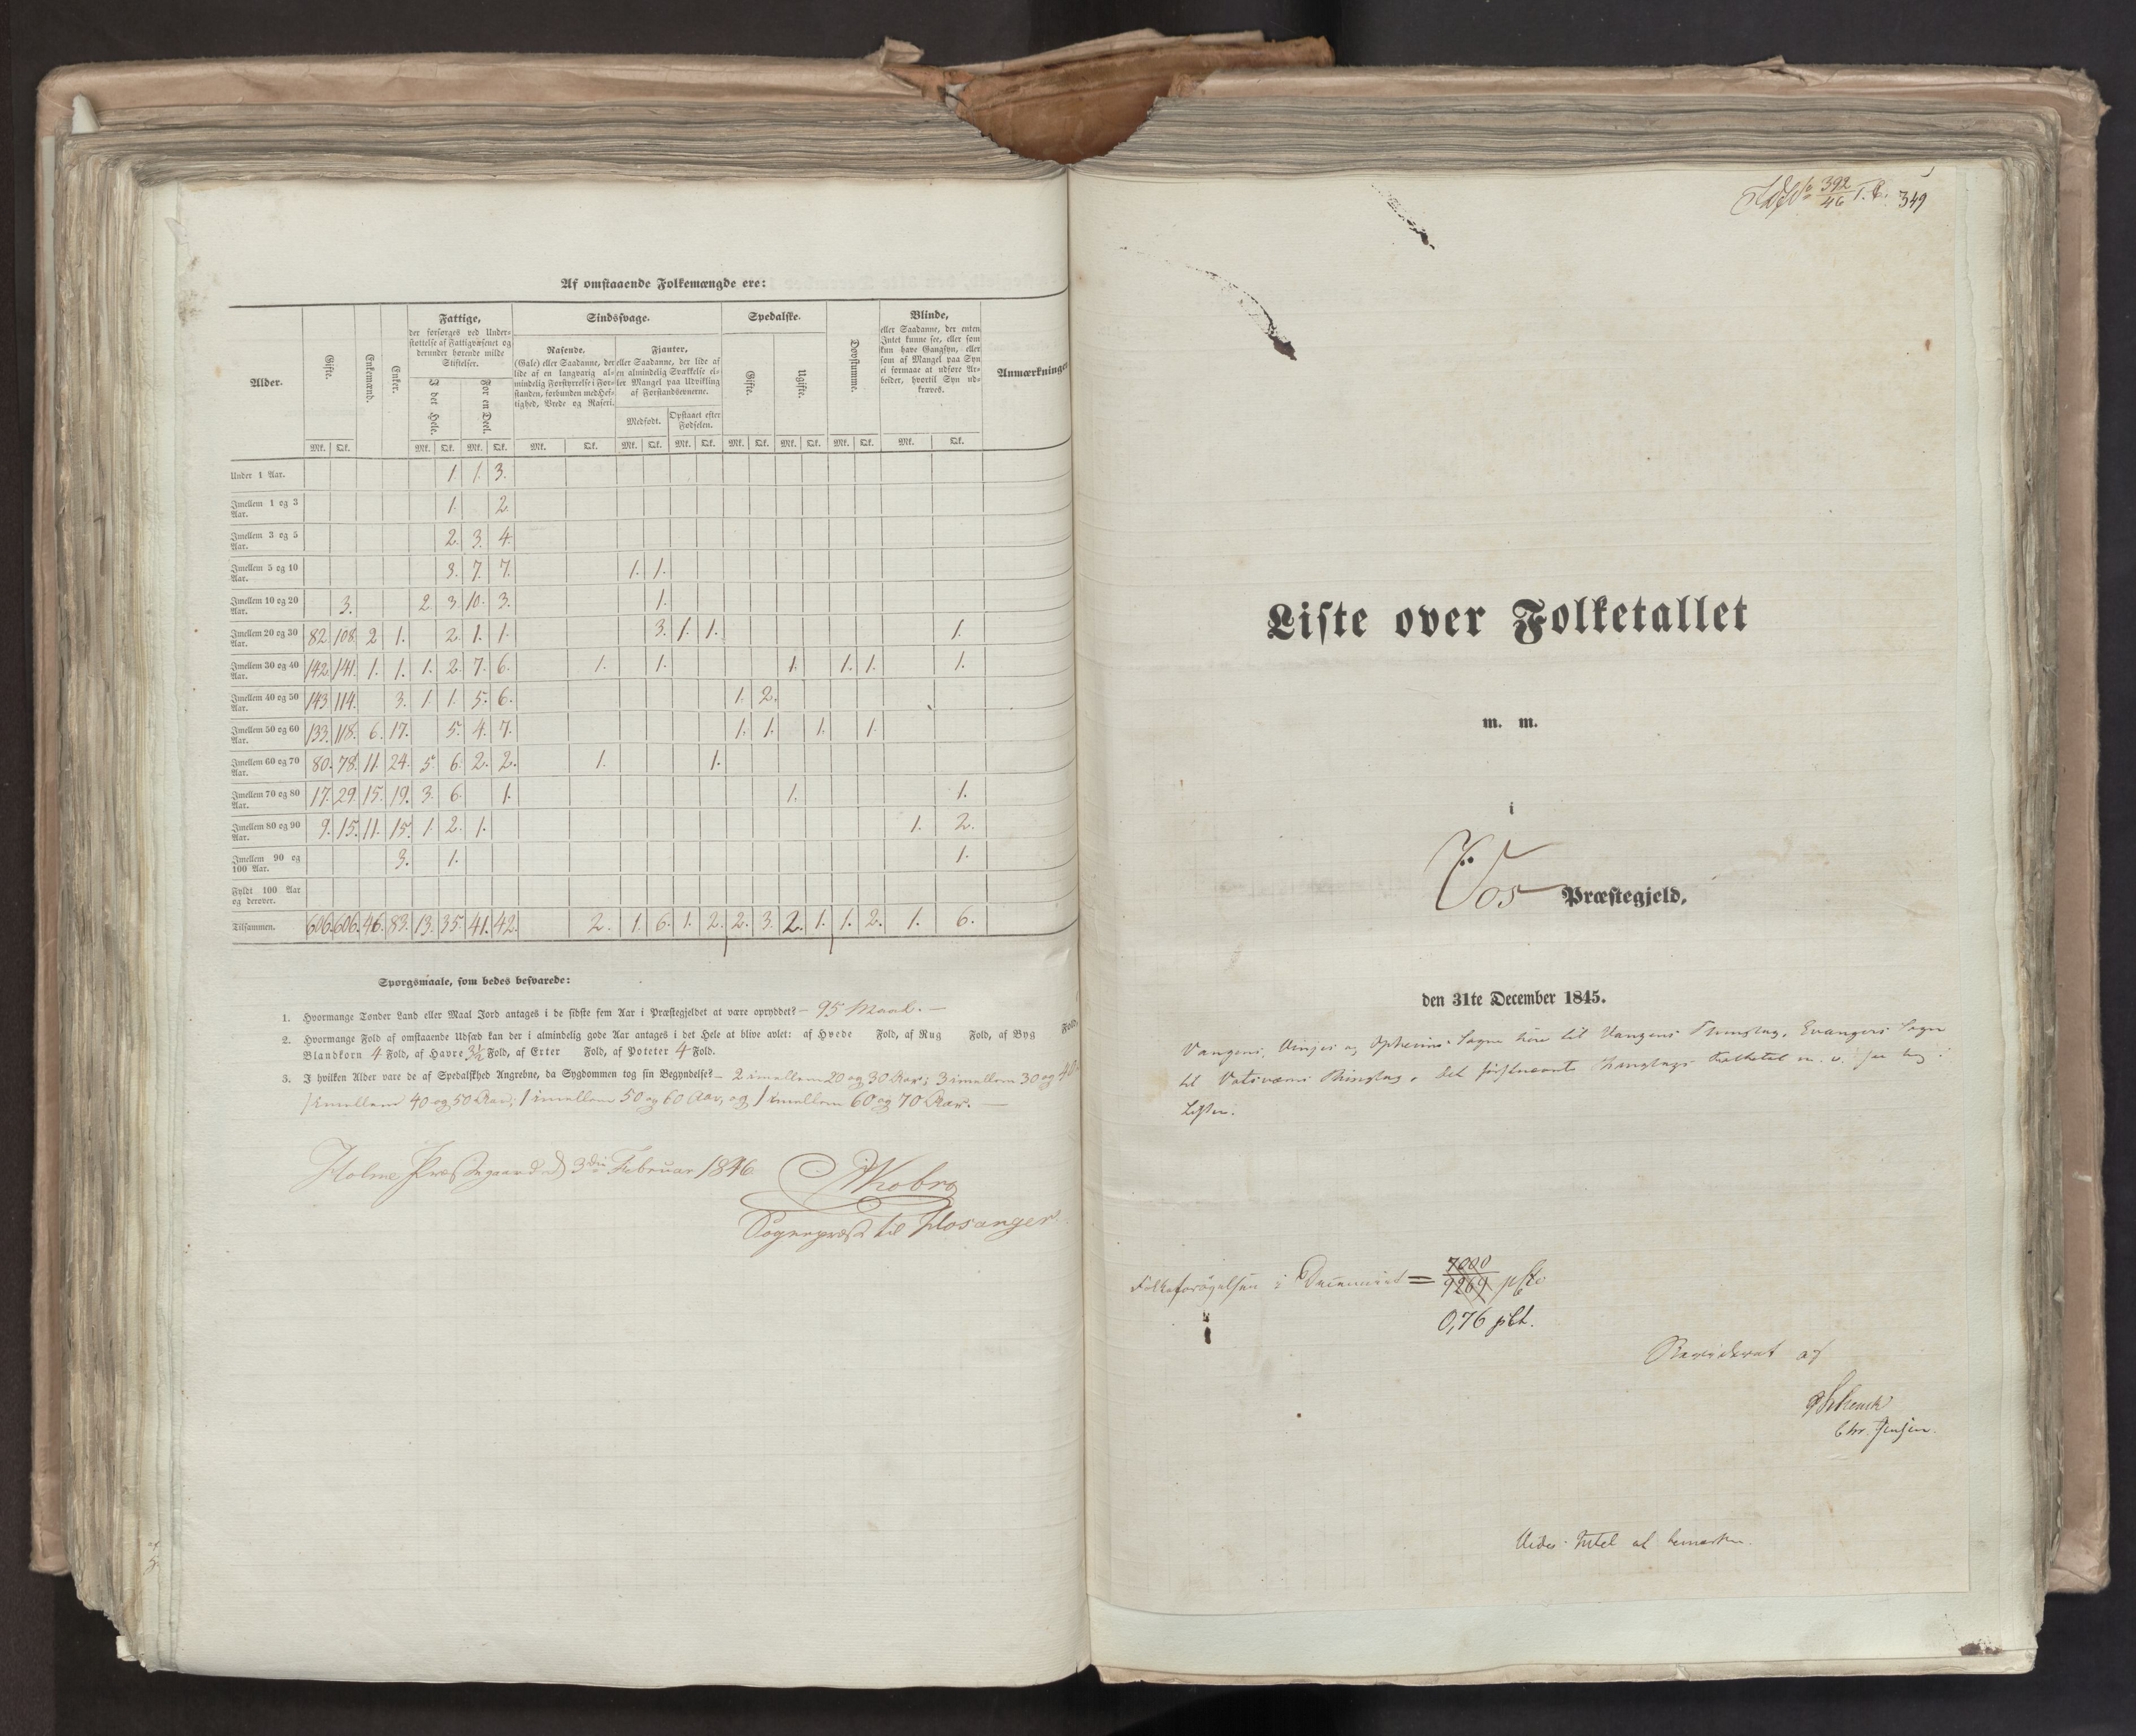 Af omstaaende Folkemængde ere:
Alder. Gifte. Enkemænd. Enker. Fattige, Sindssvage. Spedalske. Dovstumme. Blinde, Anmærkninger
der forsørges ved Under-
støttelse af Fattigvæsenet og
derunder hørende milde
Stiftelser.
I det Hele. For en Deel.
Rasende,
(Gale) eller Saadanne, der
lide af en langvarig al-
mindelig Forstyrrelse i For-
standen, forbunden med Hef-
tighed, Vrede og Raseri.
Fjanter,
eller Saadanne, der lide af
en almindelig Svækkelse el-
ler Mangel paa Udvikling
af Forstandsevnerne.
Medfødt. Opstaaet efter
Fødselen.
Gifte. Ugifte.
eller Saadanne, der enten
Intet kunne see, eller som
kun have Gangsyn, eller
som af Mangel paa Syn
ei formaae at udføre Ar-
beider, hvortil Syn ud-
kræves.
Mk. Qk. Mk. Qk. Mk. Qk. Mk. Qk. Mk. Qk. Mk. Qk. Mk. Qk. Mk. Qk. Mk. Qk. Mk. Qk.
Under 1 Aar. 1. 1. 3.
Imellem 1 og 3 Aar. 1. 2.
Imellem 3 og 5 Aar. 2. 3. 4.
Imellem 5 og 10 Aar. 3. 7. 7. 1. 1.
Imellem 10 og 20 Aar. 3. 2. 3. 10. 3. 1.
Imellem 20 og 30 Aar. 82. 108. 2 1. 2. 1. 1. 3. 1. 1. 1.
Imellem 30 og 40 Aar. 142. 141. 1. 1. 1. 2. 7. 6. 1. 1. 1. 1. 1. 1.
Imellem 40 og 50 Aar. 143 114. 3. 1. 1. 5. 6. 1. 2.
Imellem 50 og 60 Aar. 133. 118. 6. 17. 5. 4. 7. 1. 1. 1. 1.
Imellem 60 og 70 Aar. 80. 78. 11. 24. 5. 6. 2. 2. 1. 1.
Imellem 70 og 80 Aar. 17. 29. 15. 19. 3. 6. 1. 1. 1.
Imellem 80 og 90 Aar. 9. 15. 11. 15. 1. 2. 1. 1. 2.
Imellem 90 og 100 Aar. 3. 1. 1.
Fyldt 100 Aar og derover.
Tilsammen. 606. 606. 46. 83. 13. 35. 41. 42. 2. 1. 6. 1. 2. 2. 3. 2. 1. 1. 2. 1. 6.
Spørgsmaale, som bedes besvarede:
1. Hvormange Tønder Land eller Maal Jord antages i de sidste fem Aar i Præstegjeldet at være opryddet? – 95 Maal. –
2. Hvormange Fold af omstaaende Udsæd kan der i almindelig gode Aar antages i det Hele at blive avlet: af Hvede Fold, af Rug Fold, af Byg Fold,
Blandkorn 4 Fold, af Havre 3½ Fold, af Erter Fold, af Poteter 4 Fold.
3. I hvilken Alder vare de af Spedalskhed Angrebne, da Sygdommen tog sin Begyndelse? – 2 imellem 20 og 30 Aar; 3 imellem 30 og 40
1 imellem 40 og 50 Aar; 1 imellem 50 og 60 Aar, og 1 imellem 60 og 70 Aar. –
Holme Præstegaard d 3die Februar 1846
Kobro
Sognepræst til Hosanger.
392/46 349
Liste over Folketallet
m. m.
i
Vos Præstegjeld,
den 31te December 1845.
Vangens, Vinjes og Opheims Sogne høre til Vangens Thinglag, Evangers Sogn
til Thinglag. Det Thinglags Folketal m. v. see
Listen.
Folkeforøgelsen i Decenniet = 7000/9269 pCto
0,76 pCt.
Revideret af
Chr. Jensen.